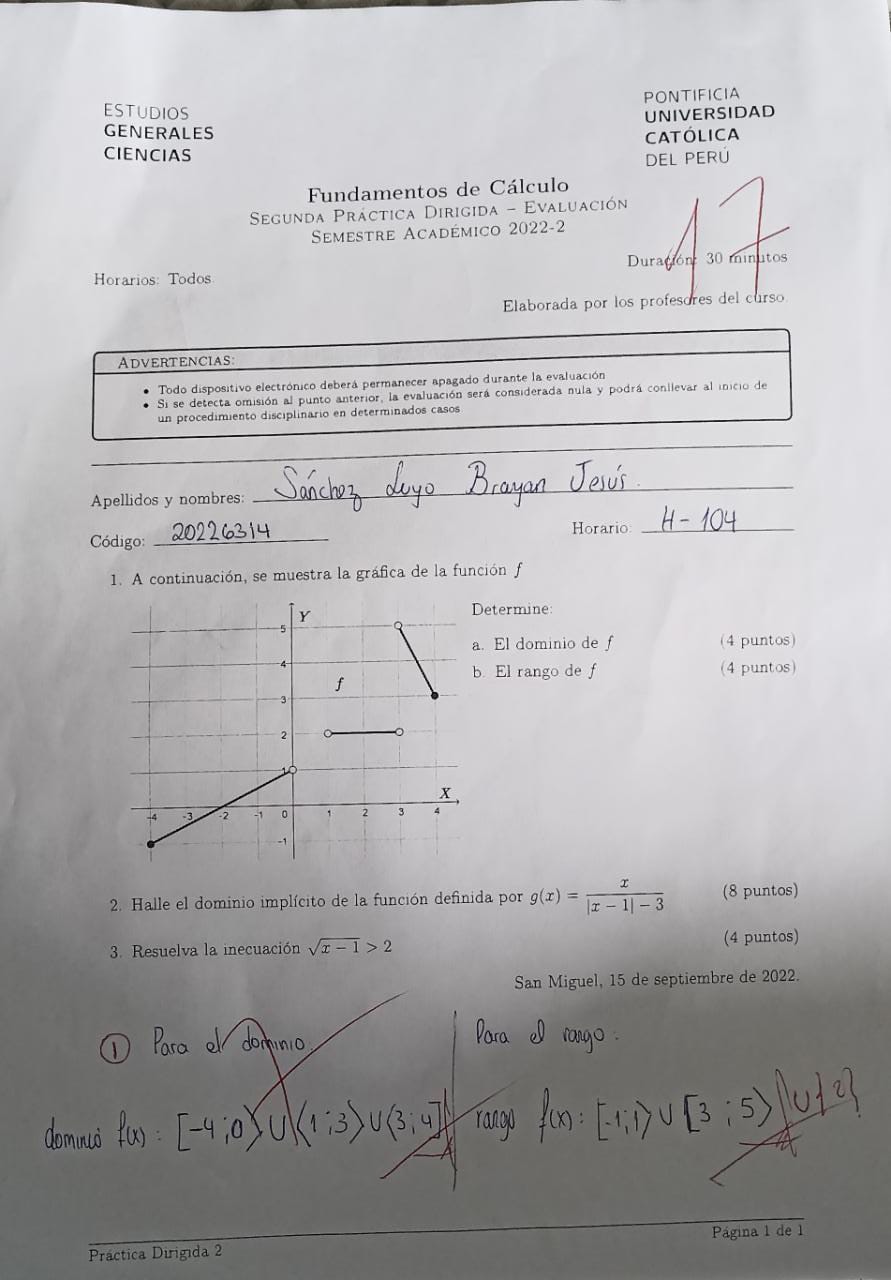 ESTUDIOS
GENERALES
CIENCIAS
PONTIFICIA
UNIVERSIDAD
CATÓLICA
DEL PERÚ
Fundamentos de Cálculo
SEGUNDA PRÁCTICA DIRIGIDA – EVALUACIÓN
SEMESTRE ACADÉMICO 2022-2
17
Duración: 30 minutos
Horarios: Todos.
Elaborada por los profesores del curso.
ADVERTENCIAS:
• Todo dispositivo electrónico deberá permanecer apagado durante la evaluación
• Si se detecta omisión al punto anterior, la evaluación será considerada nula y podrá conllevar al inicio de
un procedimiento disciplinario en determinados casos
Apellidos y nombres: Sánchez Luyo Brayan Jesús.
Código: 20226314 Horario: H-104
1. A continuación, se muestra la gráfica de la función f
Y
5
4
f
3
2
1
X
-4 -3 -2 -1 0 1 2 3 4
-1
Determine:
a. El dominio de f (4 puntos)
b. El rango de f (4 puntos)
2. Halle el dominio implícito de la función definida por g(x) = x / (|x − 1| − 3) (8 puntos)
3. Resuelva la inecuación √(x − 1) > 2 (4 puntos)
San Miguel, 15 de septiembre de 2022.
① Para el dominio.
dominio f(x): [-4;0⟩ ∪ ⟨1;3⟩ ∪ ⟨3;4]
Para el rango:
rango f(x): [-1;1⟩ ∪ [3;5⟩ ∪ {2}
Práctica Dirigida 2
Página 1 de 1